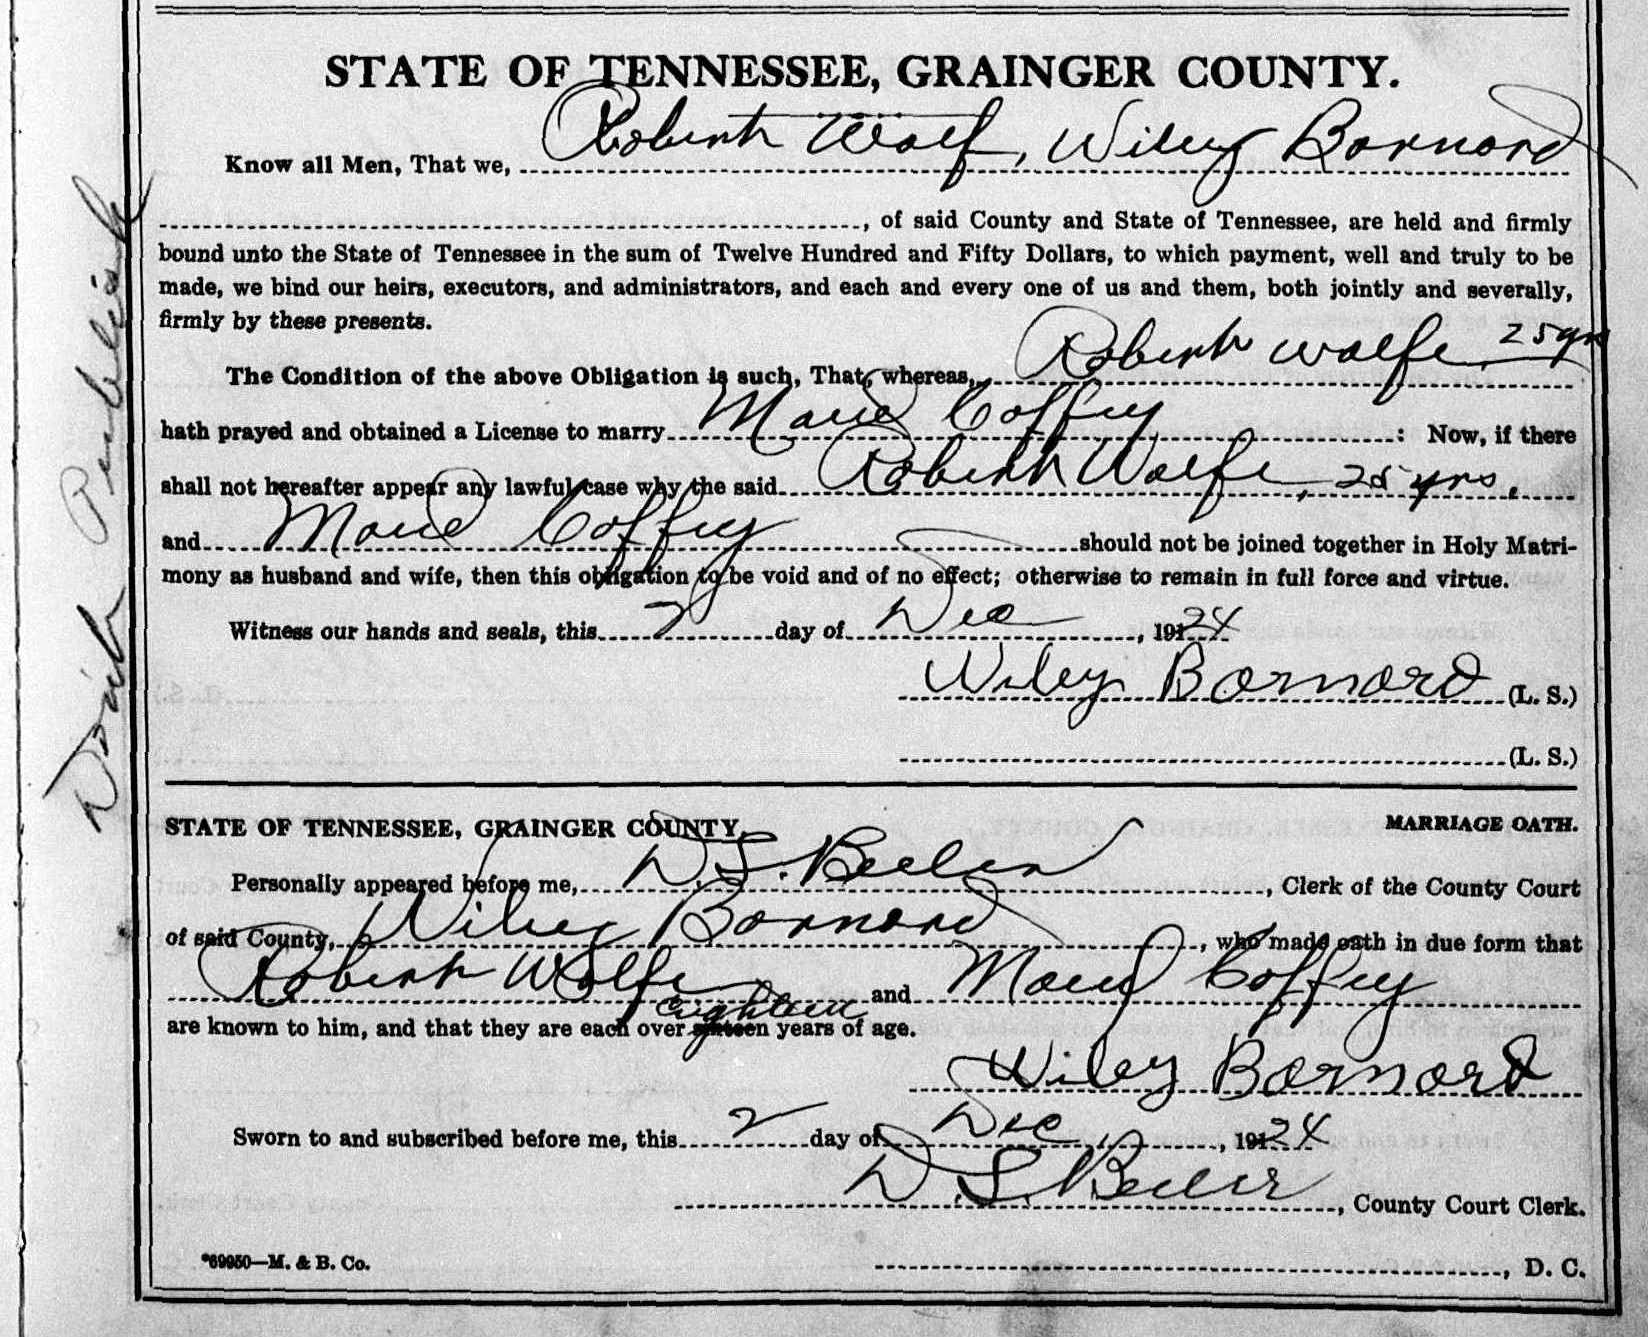 STATE OF TENNESSEE, GRAINGER COUNTY.
Know all Men, That we, Robert Wolf, Wiley Bornord
, of said County and State of Tennessee, are held and firmly
bound unto the State of Tennessee in the sum of Twelve Hundred and Fifty Dollars, to which payment, well and truly to be
made, we bind our heirs, executors, and administrators, and each and every one of us and them, both jointly and severally,
firmly by these presents.
The Condition of the above Obligation is such, That, whereas, Robert Wolfe 25 yrs
hath prayed and obtained a License to marry Maud Coffey : Now, if there
shall not hereafter appear any lawful case why the said Robert Wolfe, 25 yrs,
and Maud Coffey should not be joined together in Holy Matri-
mony as husband and wife, then this obligation to be void and of no effect; otherwise to remain in full force and virtue.
Witness our hands and seals, this 2 day of Dec, 1924
Wiley Bornord (L. S.)
(L. S.)
STATE OF TENNESSEE, GRAINGER COUNTY, MARRIAGE OATH.
Personally appeared before me, D. S. Beeler, Clerk of the County Court
of said County, Wiley Bornord, who made oath in due form that
Robert Wolfe and Maud Coffey
are known to him, and that they are each over Eighteen years of age.
Wiley Bornord
Sworn to and subscribed before me, this 2 day of Dec, 1924
D. S. Beeler, County Court Clerk.
*69950—M. & B. Co. , D. C.
Don't Publish